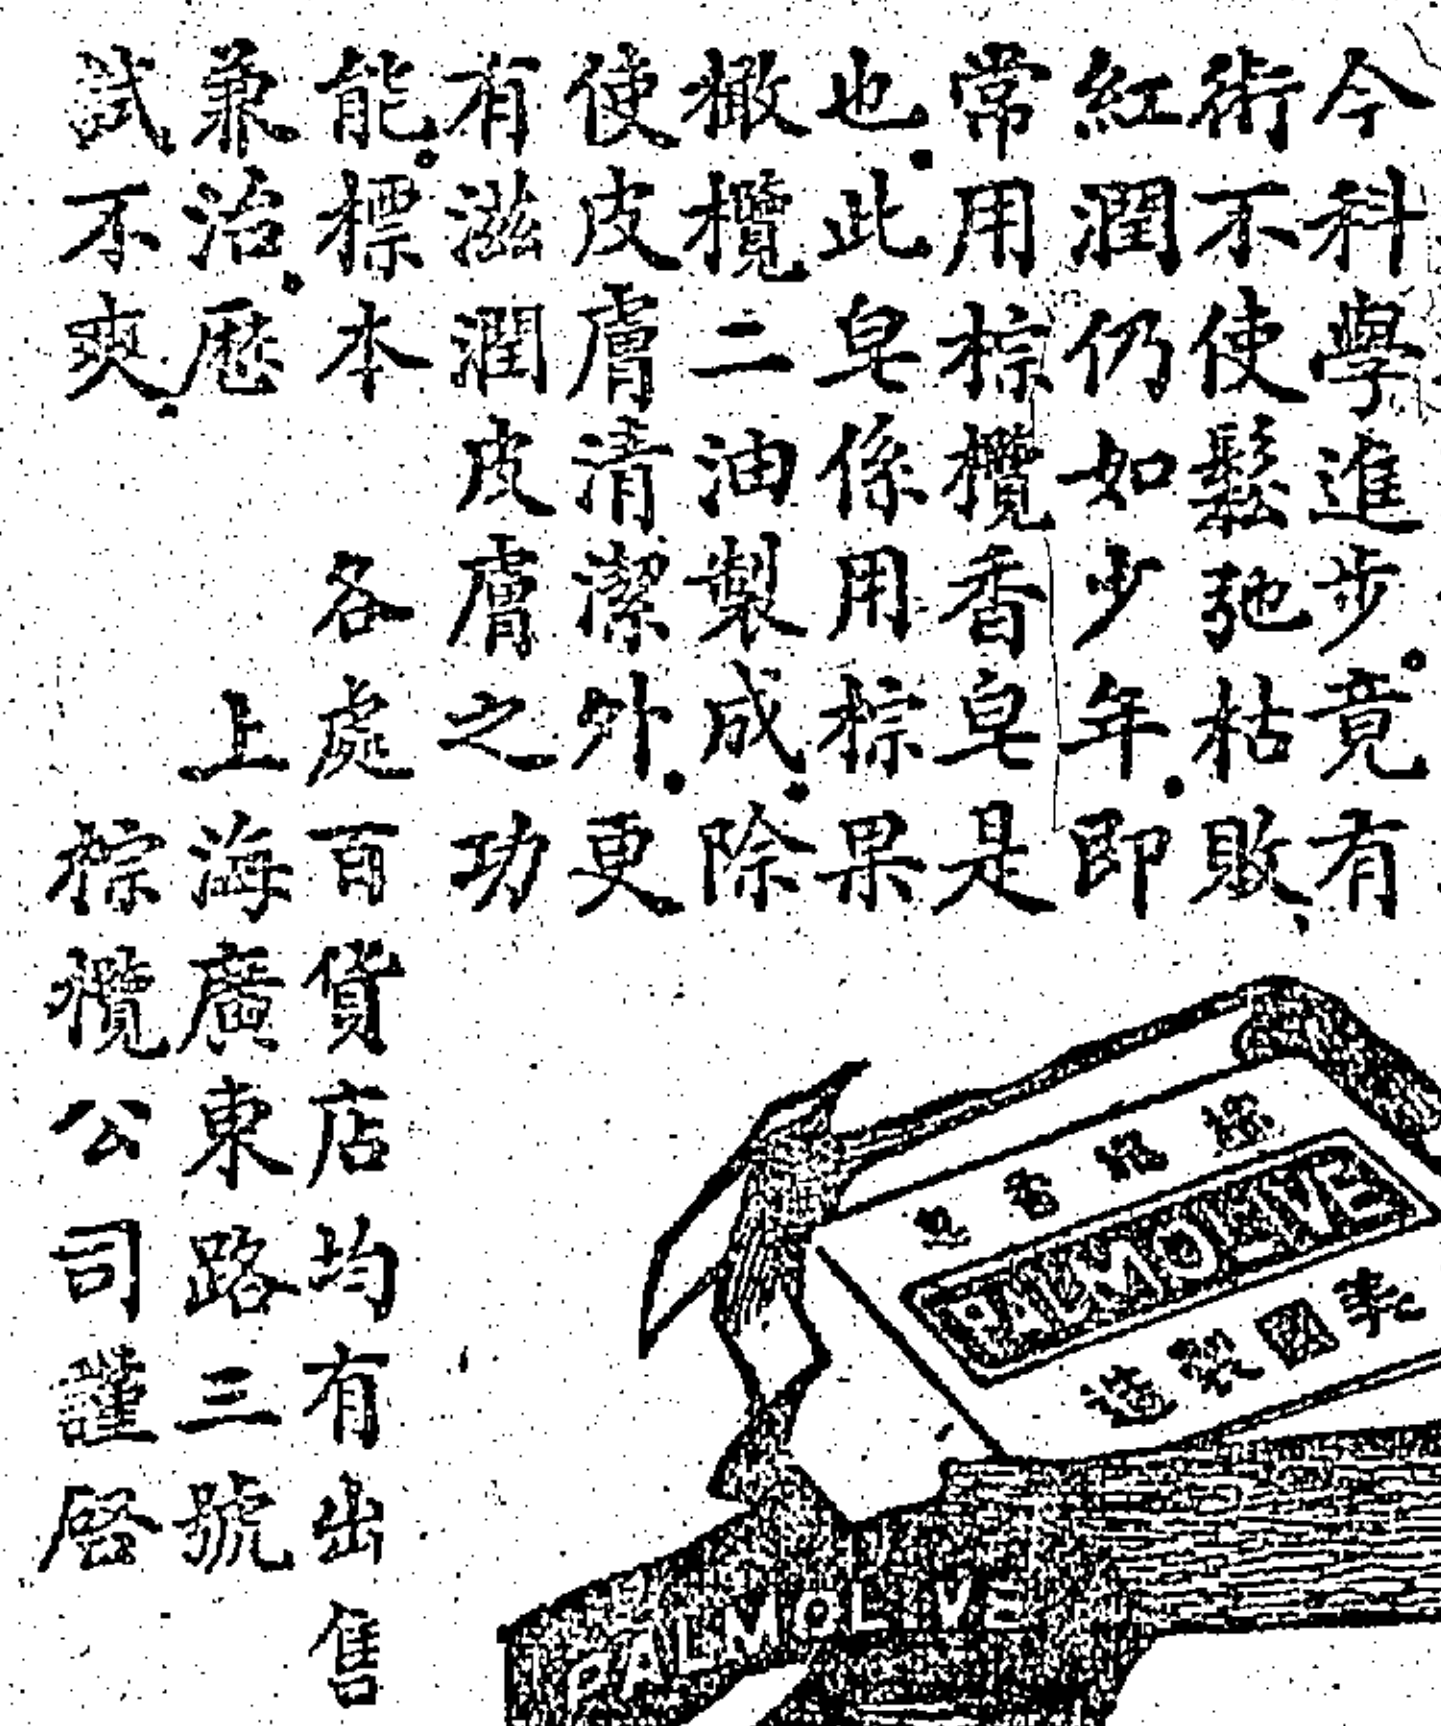 今科學進步。竟有
術不使鬆弛枯敗、
紅潤仍如少年。即
常用棕欖香皂是
也。此皂係用棕果
橄欖二油製成。除
使皮膚清潔外。更
有滋潤皮膚之功
能。標本
兼治。歷
試不爽。
各處百貨店均有出售
上海廣東路三號
棕欖公司謹啓
棕欖香皂
PALMOLIVE
美國製造
PALMOLIVE